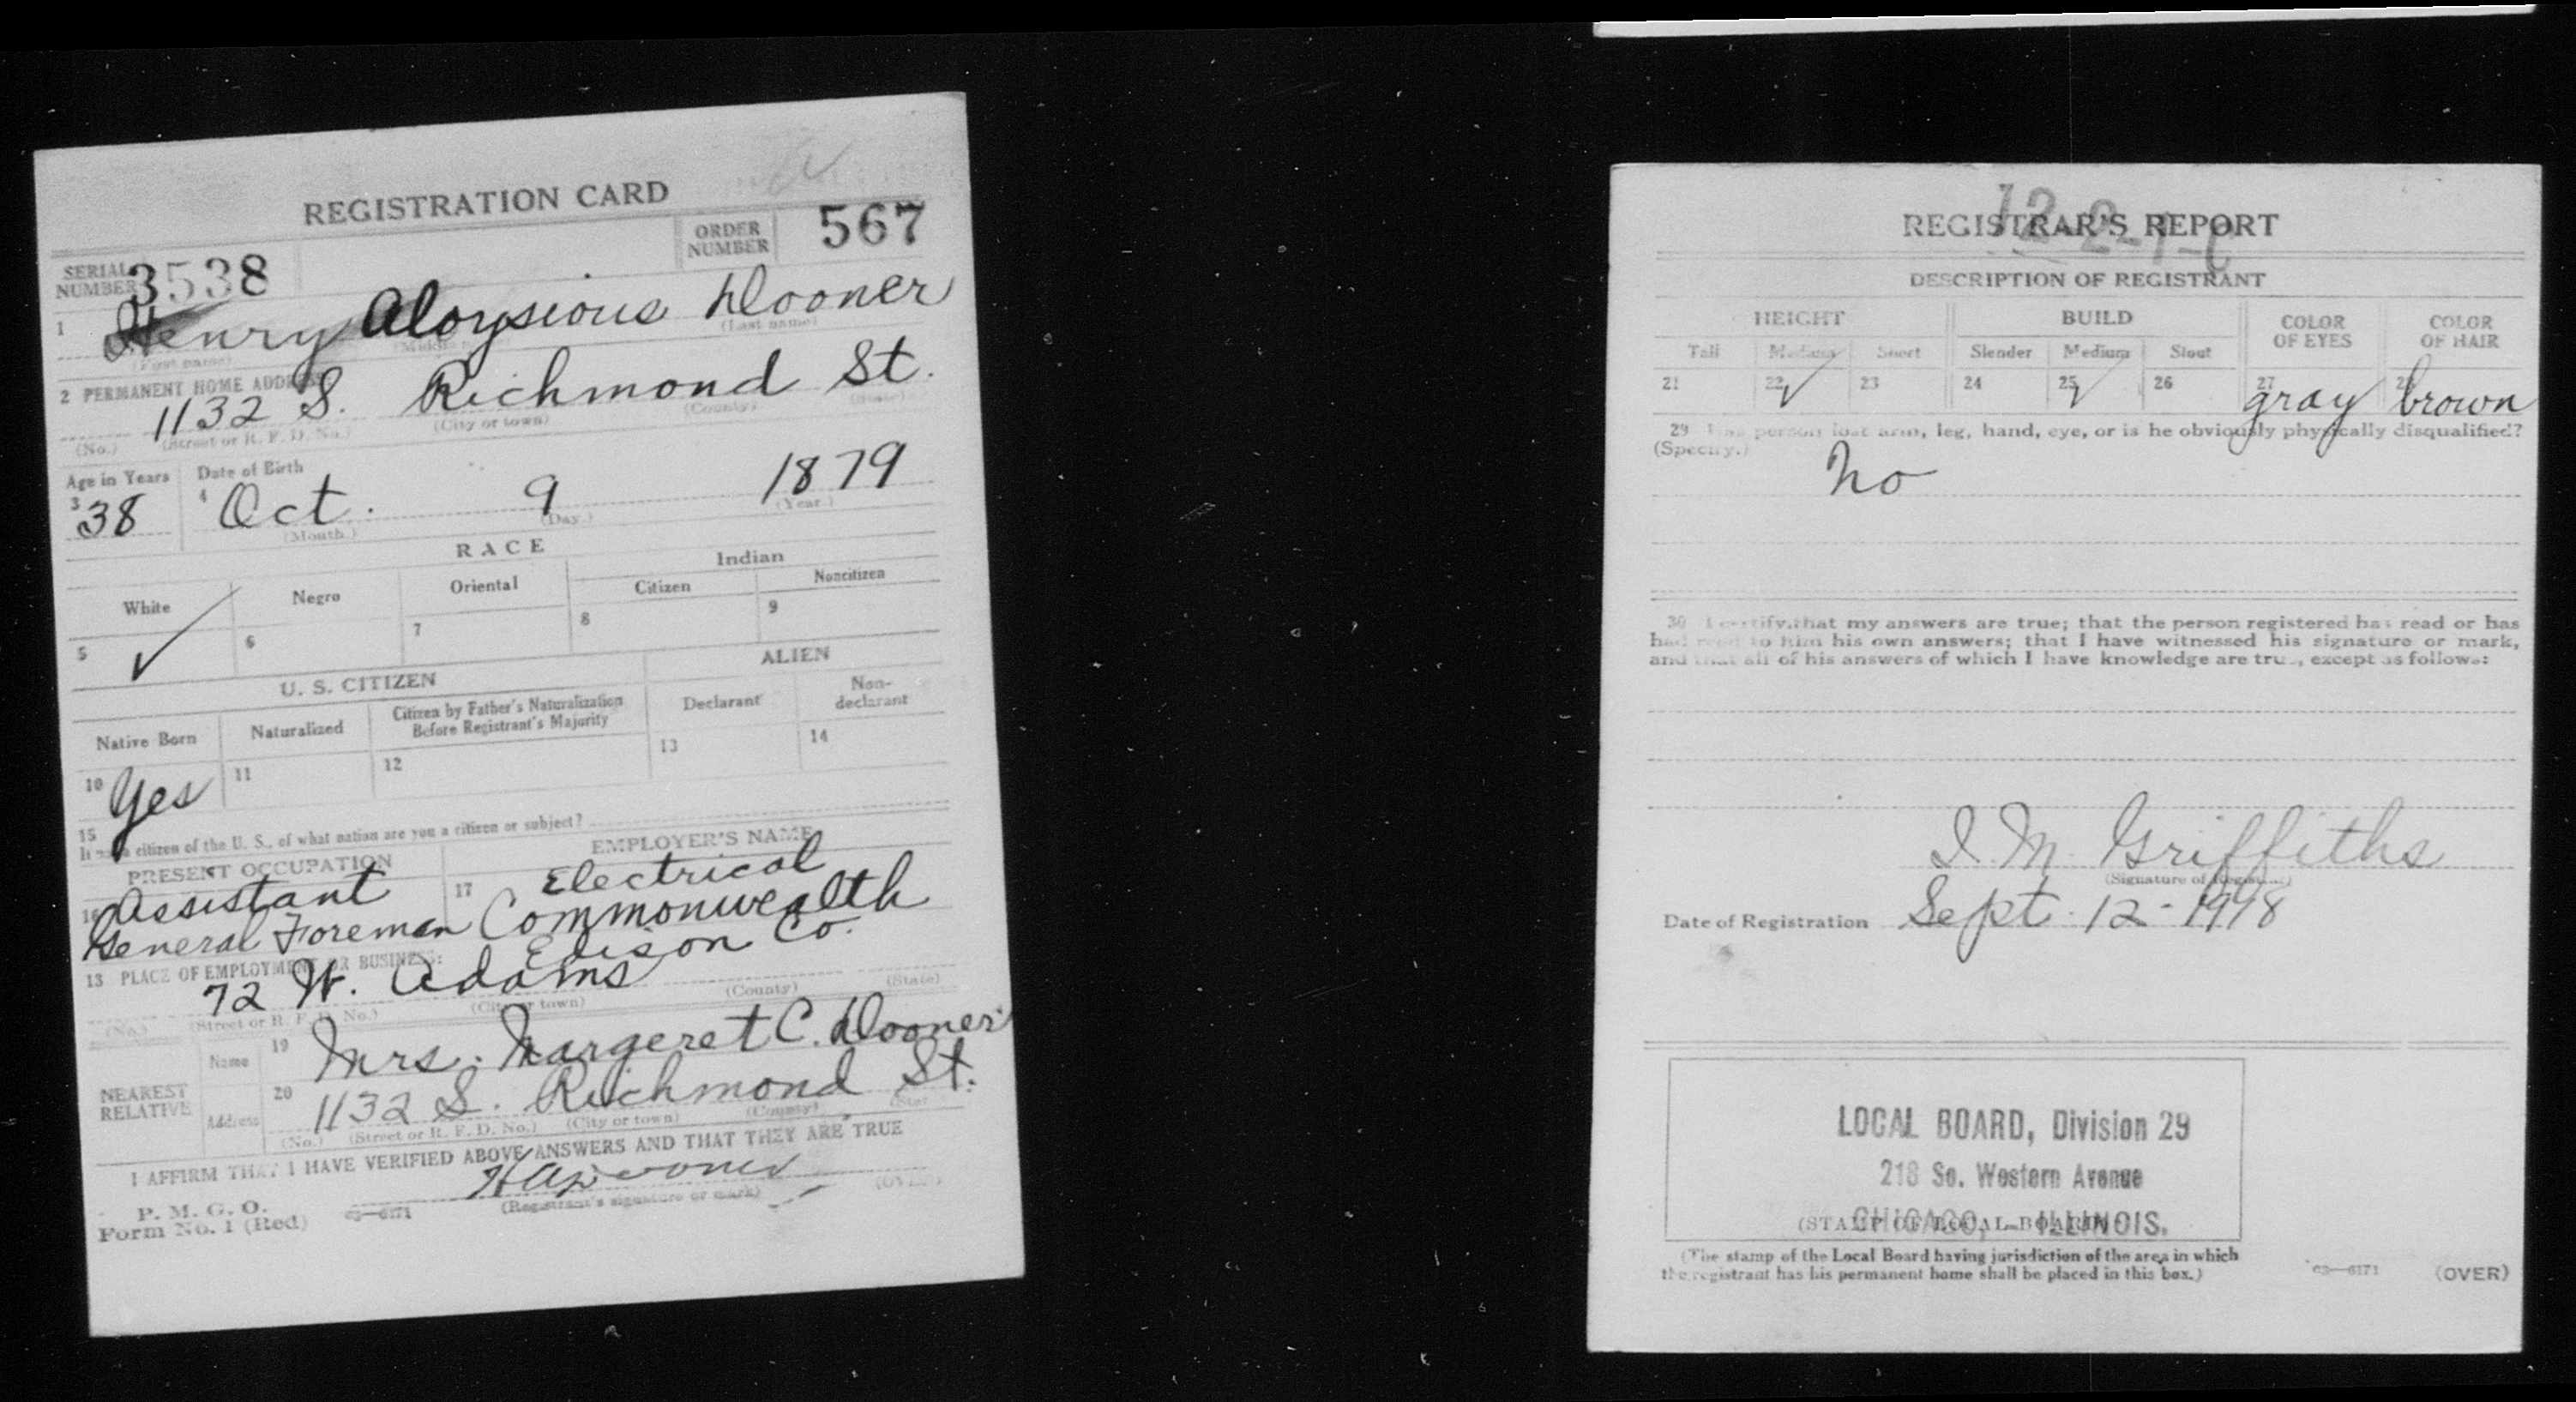 REGISTRATION CARD
SERIAL NUMBER 3538
ORDER NUMBER 567
1 Henry Aloysious Dooner
(First name) (Last name)
2 PERMANENT HOME ADDRESS
1132 S. Richmond St.
(No.) (Street or R. F. D. No.) (City or town) (County) (State)
Age in Years Date of Birth
3 38 4 Oct. 9 1879
(Month.) (Day.) (Year.)
RACE
White Negro Oriental Indian
Citizen Noncitizen
5 ✓ 6 7 8 9
U. S. CITIZEN ALIEN
Native Born Naturalized Citizen by Father's Naturalization Before Registrant's Majority Declarant Non-declarant
10 Yes 11 12 13 14
15
citizen of the U. S., of what nation are you a citizen or subject?
PRESENT OCCUPATION EMPLOYER'S NAME
16 Assistant 17 Electrical
General Foreman Commonwealth
Edison Co.
13 PLACE OF EMPLOYMENT OR BUSINESS:
72 W. Adams
(No.) (Street or R. F. D. No.) (City or town) (County) (State)
NEAREST RELATIVE
Name 19 Mrs. Margeret C. Dooner
Address 20 1132 S. Richmond St.
(No.) (Street or R. F. D. No.) (City or town) (County)
I AFFIRM THAT I HAVE VERIFIED ABOVE ANSWERS AND THAT THEY ARE TRUE
H A Dooner
P. M. G. O.
Form No. 1 (Red) 03—6171 (Registrant's signature or mark) (OVER)
12-2-1-C
REGISTRAR'S REPORT
DESCRIPTION OF REGISTRANT
HEIGHT BUILD COLOR OF EYES COLOR OF HAIR
Tall Medium Short Slender Medium Stout
21 22 ✓ 23 24 25 ✓ 26 27 gray brown
29 Has person lost arm, leg, hand, eye, or is he obviously physically disqualified?
(Specify.) No
30 I certify that my answers are true; that the person registered has read or has
had read to him his own answers; that I have witnessed his signature or mark,
and that all of his answers of which I have knowledge are true, except as follows:
I. M. Griffiths
(Signature of Registrar)
Date of Registration Sept. 12 - 1918
LOCAL BOARD, Division 29
218 So. Western Avenue
CHICAGO, ILLINOIS.
(STAMP OF LOCAL BOARD)
(The stamp of the Local Board having jurisdiction of the area in which
the registrant has his permanent home shall be placed in this box.)
03—6171 (OVER)